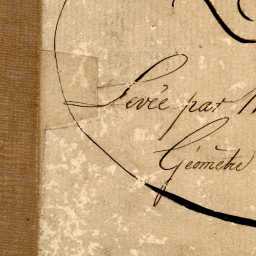 Levée par
Géomètre